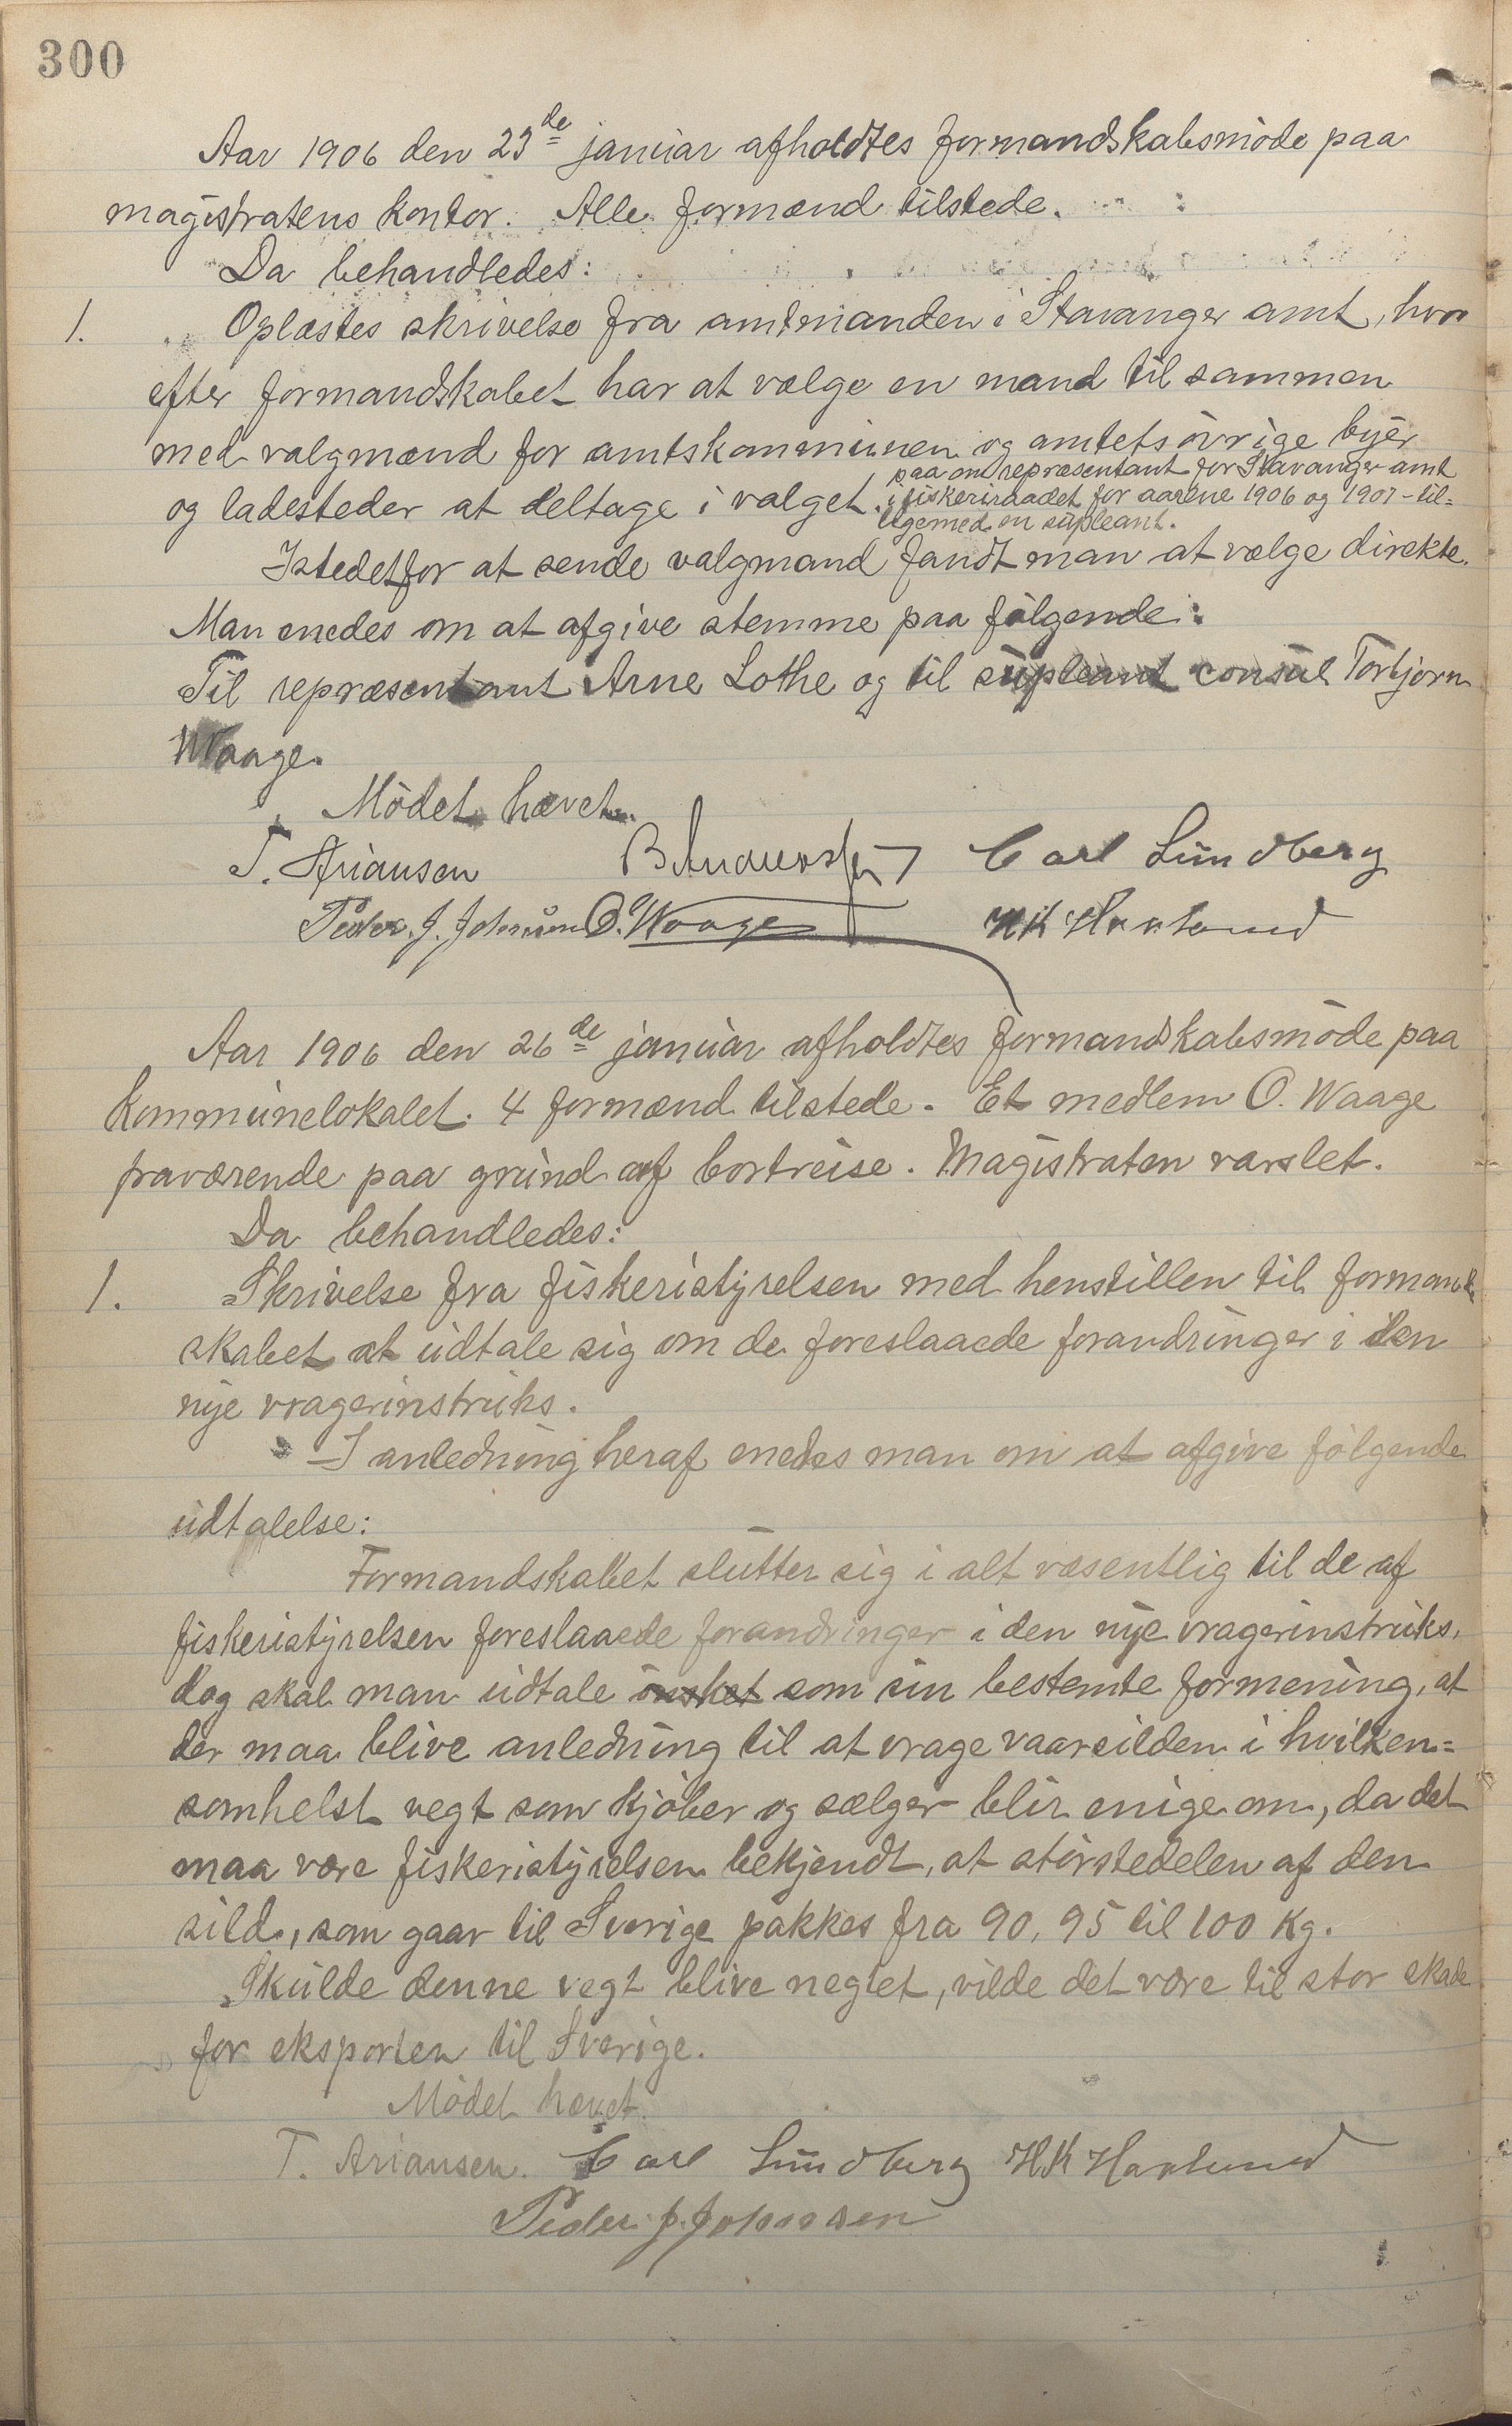 300
Aar 1906 den 23de januar afholdtes formandskabsmöde paa
magistratens kontor. Alle formænd tilstede.
Da behandledes:
1. Oplæstes skrivelse fra amtmanden i Stavanger amt, hvor
efter formandskabet har at vælge en mand til sammen
med valgmænd for amtskommunen og amtets övrige byer
og ladesteder at deltage i valget
paa en repræsentant for Stavanger amt
i fiskeriraadet for aarene 1906 og 1907 - til=
ligemed en supleant.
Istedetfor at sende valgmand fandt man at vælge direkte.
Man enedes om at afgive stemme paa fölgende:
Til repræsentant Arne Lothe og til supleant consul Torbjørn
Waage.
Mödet hævet.
T. Ariansen B Anderssen Carl Lundberg
Peder. J. Johnsen O. Waage HK Haxlund
Aar 1906 den 26de januar afholdtes formandskabsmöde paa
kommunelokalet. 4 formænd tilstede. Et medlem O. Waage
fraværende paa grund af bortreise. Magistraten varslet.
Da behandledes:
1. Skrivelse fra fiskeristyrelsen med henstillen til formand
skabet at udtale sig om de foreslaaede forandringer i den
nye vragerinstruks.
I anledning heraf enedes man om at afgive fölgende
udtalelse:
Formandskabet slutter sig i alt væsentlig til de af
fiskeristyrelsen foreslaaede forandringer i den nye vragerinstruks,
dog skal man udtale önsket som sin bestemte formening, at
der maa blive anledning til at vrage vaarsilden i hvilken=
somhelst vegt som kjöber og sælger blir enige om, da det
maa være fiskeristyrelsen bekjendt, at störstedelen af den
sild, som gaar til Sverige pakkes fra 90, 95 til 100 Kg.
Skulde denne vegt blive negtet, vilde det være til stor skade
for eksporten til Sverige.
Mödet hævet.
T. Ariansen. Carl Lundberg HK Haxlund
Peder. J. Johnsen